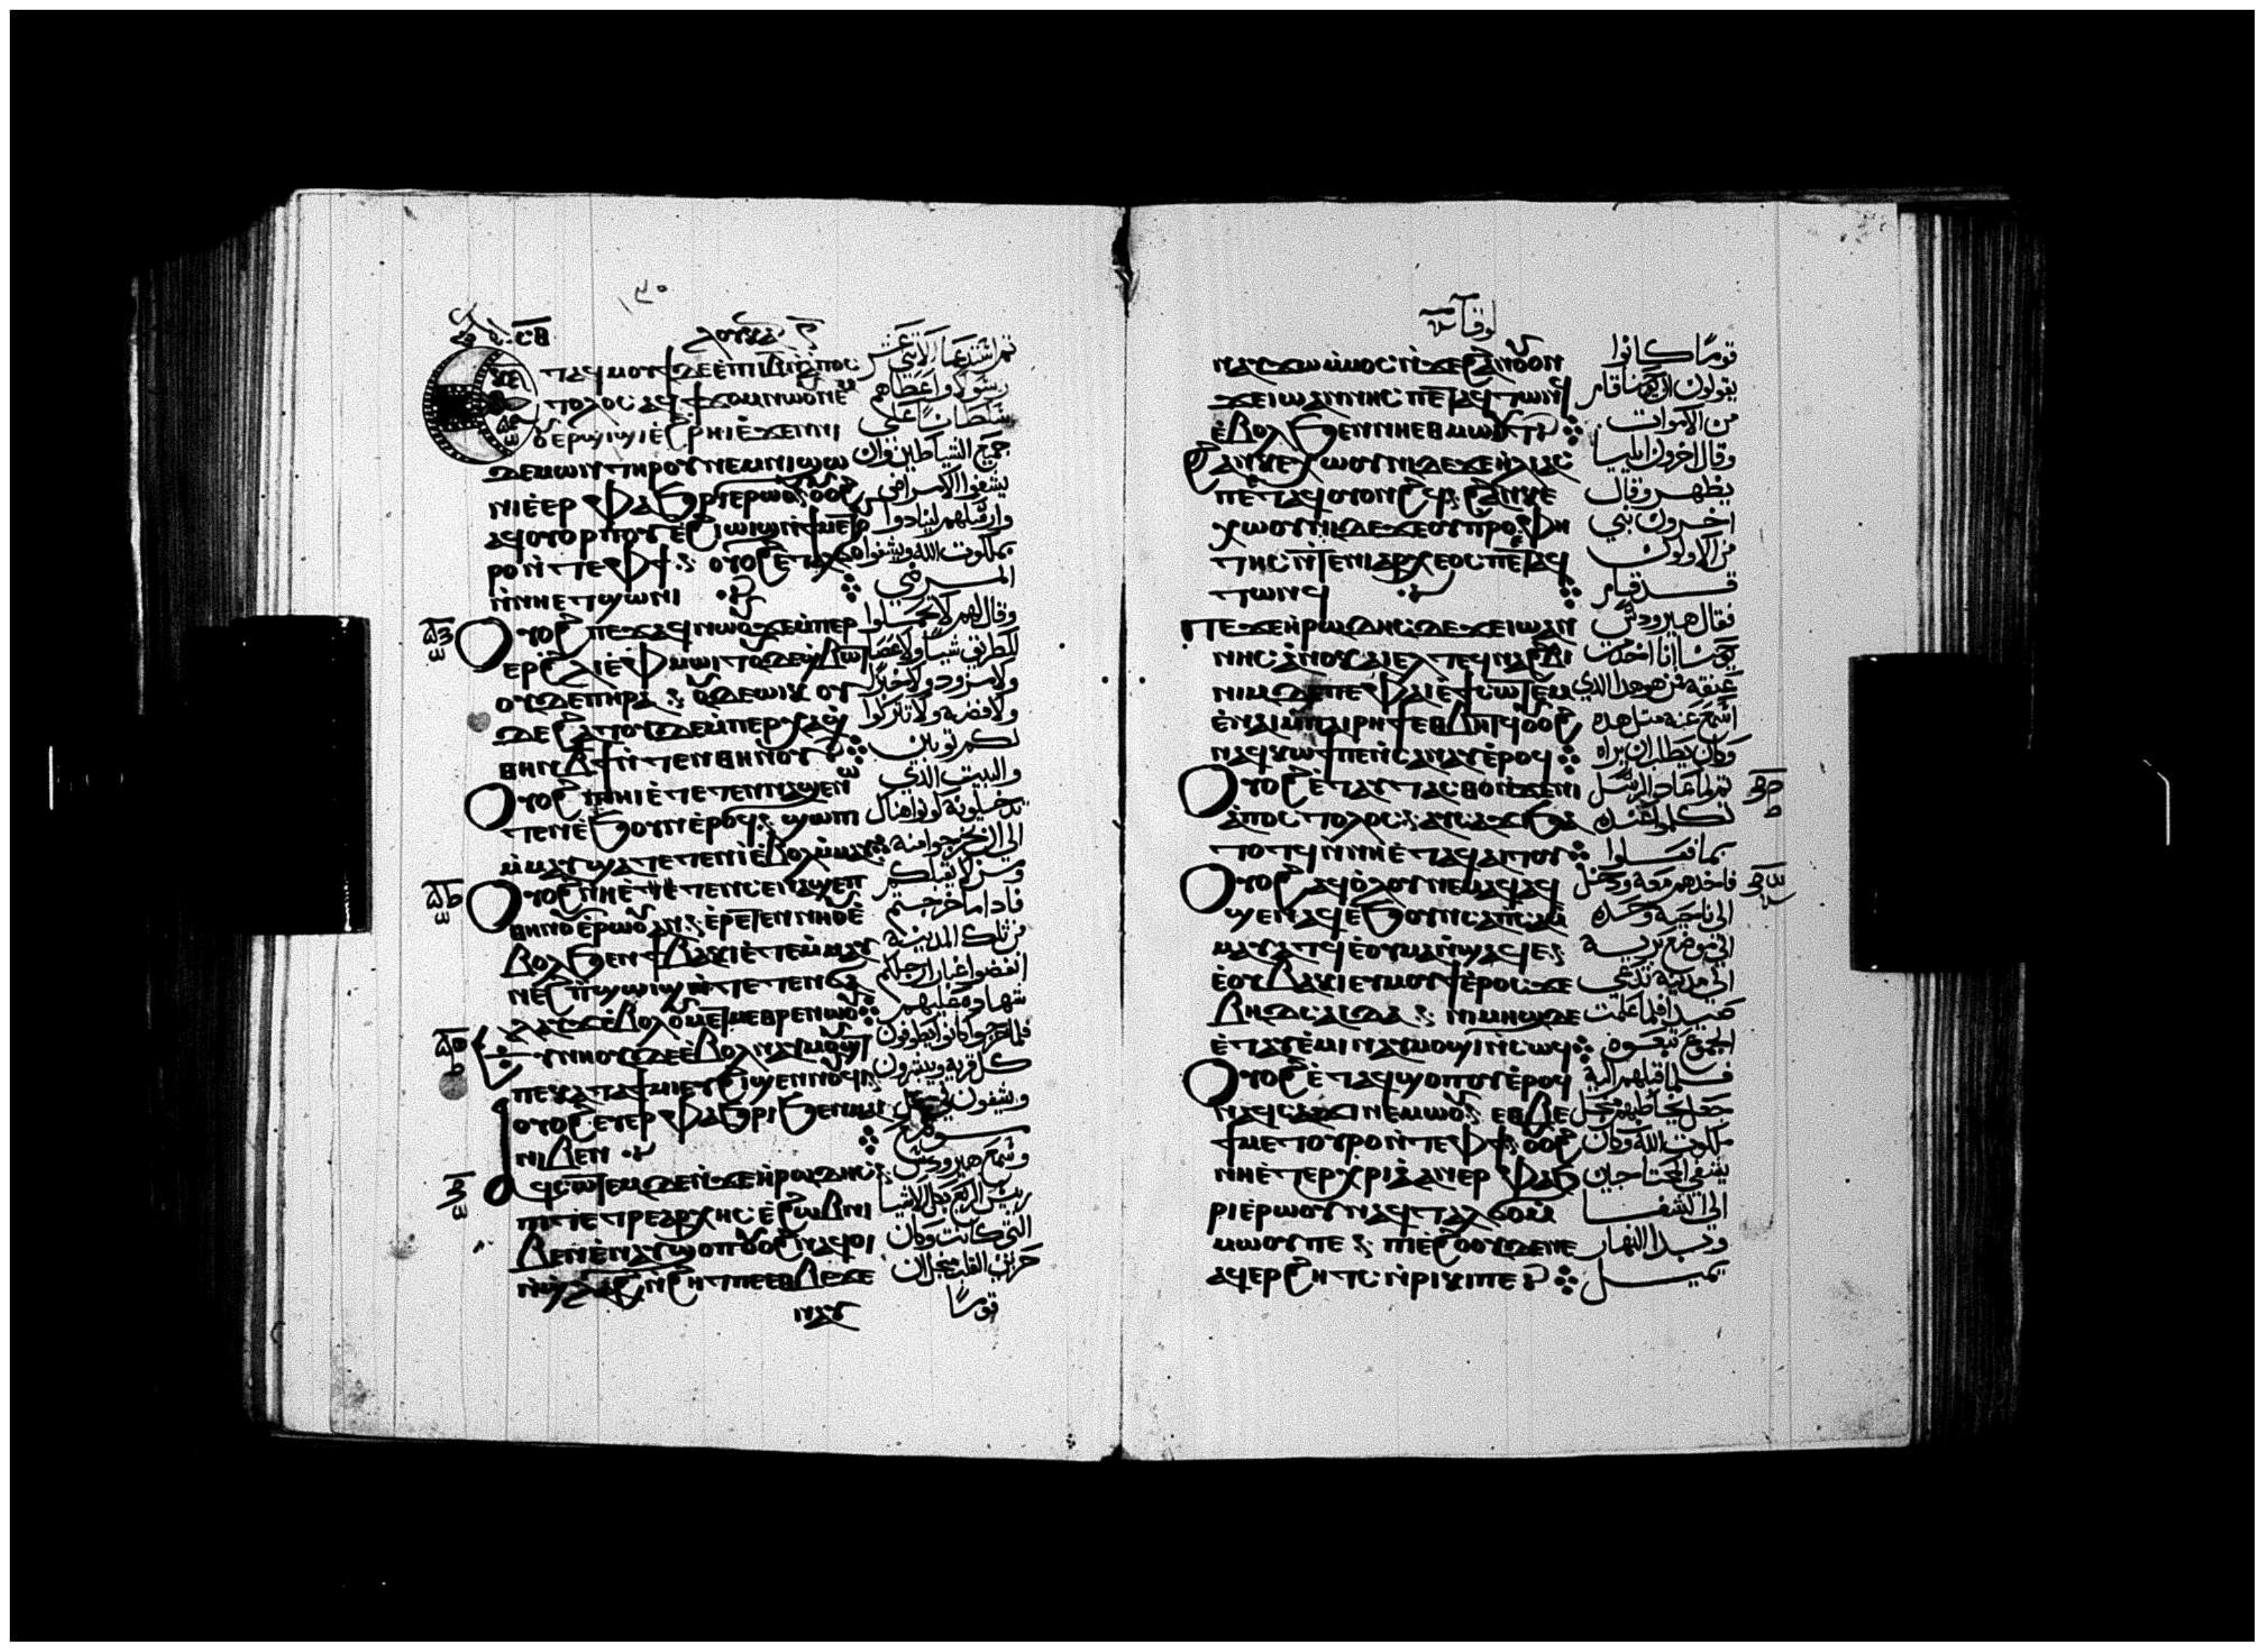 ⲗⲟⲩⲕⲁⲥ
ⲉⲧⲁϥⲙⲟⲩϯ ⲇⲉ ⲉⲡⲓⲓⲃ ⲛⲁⲡⲟⲥ
ⲧⲟⲗⲟⲥ ⲁϥϯϫⲟⲙ ⲛⲱⲟⲩ ⲛⲉⲙ
ⲟⲩⲉⲣϣⲓϣⲓ ⲉϩⲣⲏⲓ ⲉϫⲉⲛ ⲛⲓ
ⲇⲉⲙⲱⲛ ⲧⲏⲣⲟⲩ ⲛⲉⲙ ⲛⲓϣⲱ
ⲛⲓ ⲉⲉⲣⲫⲁϧⲣⲓ ⲉⲣⲱⲟⲩ ⲟⲩⲟϩ
ⲁϥⲟⲩⲟⲣⲡⲟⲩ ⲉϩⲓⲱⲓϣ ⲛϯⲙⲉⲧⲟⲩ
ⲣⲟ ⲛⲧⲉ ⲫϯ ⲟⲩⲟϩ ⲉⲧⲁⲗϭⲟ
ⲛⲛⲏ ⲉⲧϣⲱⲛⲓ
ⲟⲩⲟϩ ⲡⲉϫⲁϥ ⲛⲱⲟⲩ ϫⲉ ⲙⲡⲉⲣ
ⲉⲗ ϩⲗⲓ ⲉⲫⲙⲱⲓⲧ ⲟⲩⲇⲉ ϣⲃⲱⲧ
ⲟⲩⲇⲉ ⲡⲏⲣⲁ ⲟⲩⲇⲉ ⲱⲓⲕ ⲟⲩ
ⲇⲉ ϩⲁⲧ ⲟⲩⲇⲉ ⲙⲡⲉⲣⲭⲁ ϣ
ⲑⲏⲛ ⲃϯ ⲛⲧⲉⲛ ⲑⲏⲛⲟⲩ
ⲟⲩⲟϩ ⲡⲓⲏⲓ ⲉⲧⲉⲧⲉⲛⲛⲁϣⲉ ⲛⲱ
ⲧⲉⲛ ⲉϧⲟⲩⲛ ⲉⲣⲟϥ ϣⲱⲡⲓ
ⲙⲙⲁⲩ ϣⲁⲧⲉⲧⲉⲛⲓ ⲉⲃⲟⲗ ⲙⲙⲁⲩ
ⲟⲩⲟϩ ⲛⲏ ⲉⲧⲉⲛⲥⲉⲛⲁϣⲉⲡ
ⲑⲏⲛⲟⲩ ⲉⲣⲱⲟⲩ ⲁⲛ ⲉⲣⲉⲧⲉⲛⲛⲏⲟⲩ ⲉ
ⲃⲟⲗ ϧⲉⲛ ϯⲃⲁⲕⲓ ⲉⲧⲉⲙⲙⲁⲩ
ⲛⲉϩ ⲡϣⲱⲓϣ ⲛⲧⲉ ⲛⲉⲧⲉⲛϭⲁ
ⲗⲁⲩϫ ⲉⲃⲟⲗ ⲉⲩⲙⲉⲧⲙⲉⲑⲣⲉ ⲛⲱⲟⲩ
ⲉⲩⲛⲏⲟⲩ ⲇⲉ ⲉⲃⲟⲗ ⲛⲁⲩⲙⲟϣⲓ
ⲡⲉ ⲕⲁⲧⲁ ϯⲙⲓ ⲉⲩϩⲓϣⲉⲛⲛⲟⲩϥⲓ
ⲟⲩⲟϩ ⲉⲩⲉⲣⲫⲁϧⲣⲓ ϧⲉⲛ ⲙⲁⲓ
ⲛⲓⲃⲉⲛ
ⲁϥⲥⲱⲧⲉⲙ ⲇⲉ ⲛϫⲉ ⲏⲣⲱⲇⲏⲥ
ⲡⲓⲧⲉⲧⲣⲉⲁⲣⲭⲏⲥ ⲉϩⲱⲃ ⲛⲓ
ⲃⲉⲛ ⲉⲛⲁⲩϣⲟⲡ ⲟⲩⲟϩ ⲛⲁϥⲟⲓ
ⲛⲙⲕⲁϩ ⲛϩⲏⲧ ⲡⲉ ⲉⲑⲃⲉ ϫⲉ
ⲛⲁⲩ
ثم استدعا الاثني عشر
رسولا واعطاهم
سلطانا على
جميع الشياطين وان
يشفوا الامراض
وارسلهم لينادوا
بملكوت الله ويشفوا
المرضي
وقال لهم لا تحملوا
للطريق شيا ولا عصا
ولا مزود ولا خبزا
ولا فضه ولا تتركوا
لكم ثوبان
والبيت الذي
تدخلونه كونوا هناك
الي ان تخرجوا منه
ومن لا يقبلكم
فاذا ما خرجتم
من تلك المدينه
انفضوا غبار ارجلكم
شهاده عليهم
فلما خرجوا كانوا يطوفون
كل قريه ويبشرون
ويشفون في كل
موضع
وسمع هيرودس
رييس الربع بكل الاشيا
التي كانت وكان
حزين القلب لان
قوما
لوقا
ⲛⲁⲩϫⲱ ⲙⲙⲟⲥ ⲛϫⲉ ϩⲁⲛⲟⲩⲟⲛ
ϫⲉ ⲓⲱⲁⲛⲛⲏⲥ ⲡⲉⲧⲁϥⲧⲱⲛϥ
ⲉⲃⲟⲗ ϧⲉⲛ ⲛⲏ ⲉⲑⲙⲱⲟⲩⲧ
ϩⲁⲛⲕⲉⲭⲱⲟⲩⲛⲓ ⲇⲉ ϫⲉ ⲏⲗⲓⲁⲥ
ⲡⲉⲧⲁϥⲟⲩⲟⲛϩϥ ϩⲁⲛⲕⲉ
ⲭⲱⲟⲩⲛⲓ ⲇⲉ ϫⲉ ⲟⲩⲡⲣⲟⲫⲏ
ⲧⲏⲥ ⲛⲧⲉ ⲛⲓⲁⲣⲭⲉⲟⲥ ⲡⲉⲧⲁϥ
ⲧⲱⲛϥ
ⲡⲉϫⲉ ⲏⲣⲱⲇⲏⲥ ⲇⲉ ϫⲉ ⲓⲱⲁⲛ
ⲛⲏⲥ ⲁⲛⲟⲕ ⲁⲓⲉⲗ ⲧⲉϥⲛⲁϩⲃⲓ
ⲛⲓⲙ ⲇⲉ ⲡⲉ ⲫⲁⲓ ⲉϯⲥⲱⲧⲉⲙ
ⲉⲛⲁⲓ ⲙⲡⲁⲓⲣⲏϯ ⲉⲑⲃⲏⲧϥ ⲟⲩⲟϩ
ⲛⲁϥⲕⲱϯ ⲡⲉ ⲛⲥⲁ ⲛⲁⲩ ⲉⲣⲟϥ
ⲟⲩⲟϩ ⲉⲧⲁⲩⲧⲁⲥⲑⲟ ⲛϫⲉ ⲛⲓ
ⲁⲡⲟⲥⲧⲟⲗⲟⲥ ⲁⲩⲥⲁϫⲓ ϧⲁ
ⲧⲟⲧϥ ⲛⲛⲏ ⲉⲧⲁⲩⲁⲓⲧⲟⲩ
ⲟⲩⲟϩ ⲁϥⲟⲗⲟⲩ ⲛⲉⲙⲁϥ ⲁϥ
ϣⲉⲛⲁϥ ⲉϧⲟⲩⲛ ⲥⲁⲡⲥⲁ ⲙ
ⲙⲁⲩⲁⲧϥ ⲉⲟⲩⲙⲁ ⲛϣⲁϥⲉ
ⲉⲟⲩⲃⲁⲕⲓ ⲉⲩⲙⲟⲩϯ ⲉⲣⲟⲥ ϫⲉ
ⲃⲏⲇⲥⲁⲓⲇⲁ ⲛⲓⲙⲏϣ ⲇⲉ
ⲉⲧⲁⲩⲉⲙⲓ ⲛⲁⲩⲙⲟϣⲓ ⲛⲥⲱϥ
ⲟⲩⲟϩ ⲉⲧⲁϥϣⲟⲡⲟⲩ ⲉⲣⲟϥ
ⲛⲁϥⲥⲁϫⲓ ⲛⲉⲙⲱⲟⲩ ⲉⲑⲃⲉ
ϯⲙⲉⲧⲟⲩⲣⲟ ⲛⲧⲉ ⲫϯ ⲟⲩⲟϩ
ⲛⲏ ⲉⲧⲉⲣⲭⲣⲓⲁ ⲛⲉⲣⲫⲁϧ
ⲣⲓ ⲉⲣⲱⲟⲩ ⲛⲁϥⲧⲁⲗϭⲟ ⲙ
ⲙⲱⲟⲩ ⲡⲉ ⲡⲓⲉϩⲟⲟⲩ ⲇⲉ ⲛⲉ
ⲁϥⲉⲣϩⲏⲧⲥ ⲛⲣⲓⲕⲓ ⲡⲉ
قوما كانوا
يقولون ان يوحنا قام
من الاموات
وقال اخرون ايليا
يظهر وقال
اخرون نبي
من الاولون
قد قام
فقال هيرودس
يوحنا انا اخذت
عنقه فمن هو هذا الذي
اسمع عنه مثل هذه
وكان يطلب ان يراه
ثم لما عاد الرسل
تكلموا عنده
بما فعلوا
فاخذهم معه ودخل
الي ناحيه وحده
الي موضع بريه
الي مدينه تدعي
صيدا فلما علمت
الجموع تبعوه
فلما قبلهم اليه
جعل يخاطبهم من اجل
ملكوت الله وكان
يشفي المحتاجين
الي الشفا
وبدا النهار
يميل